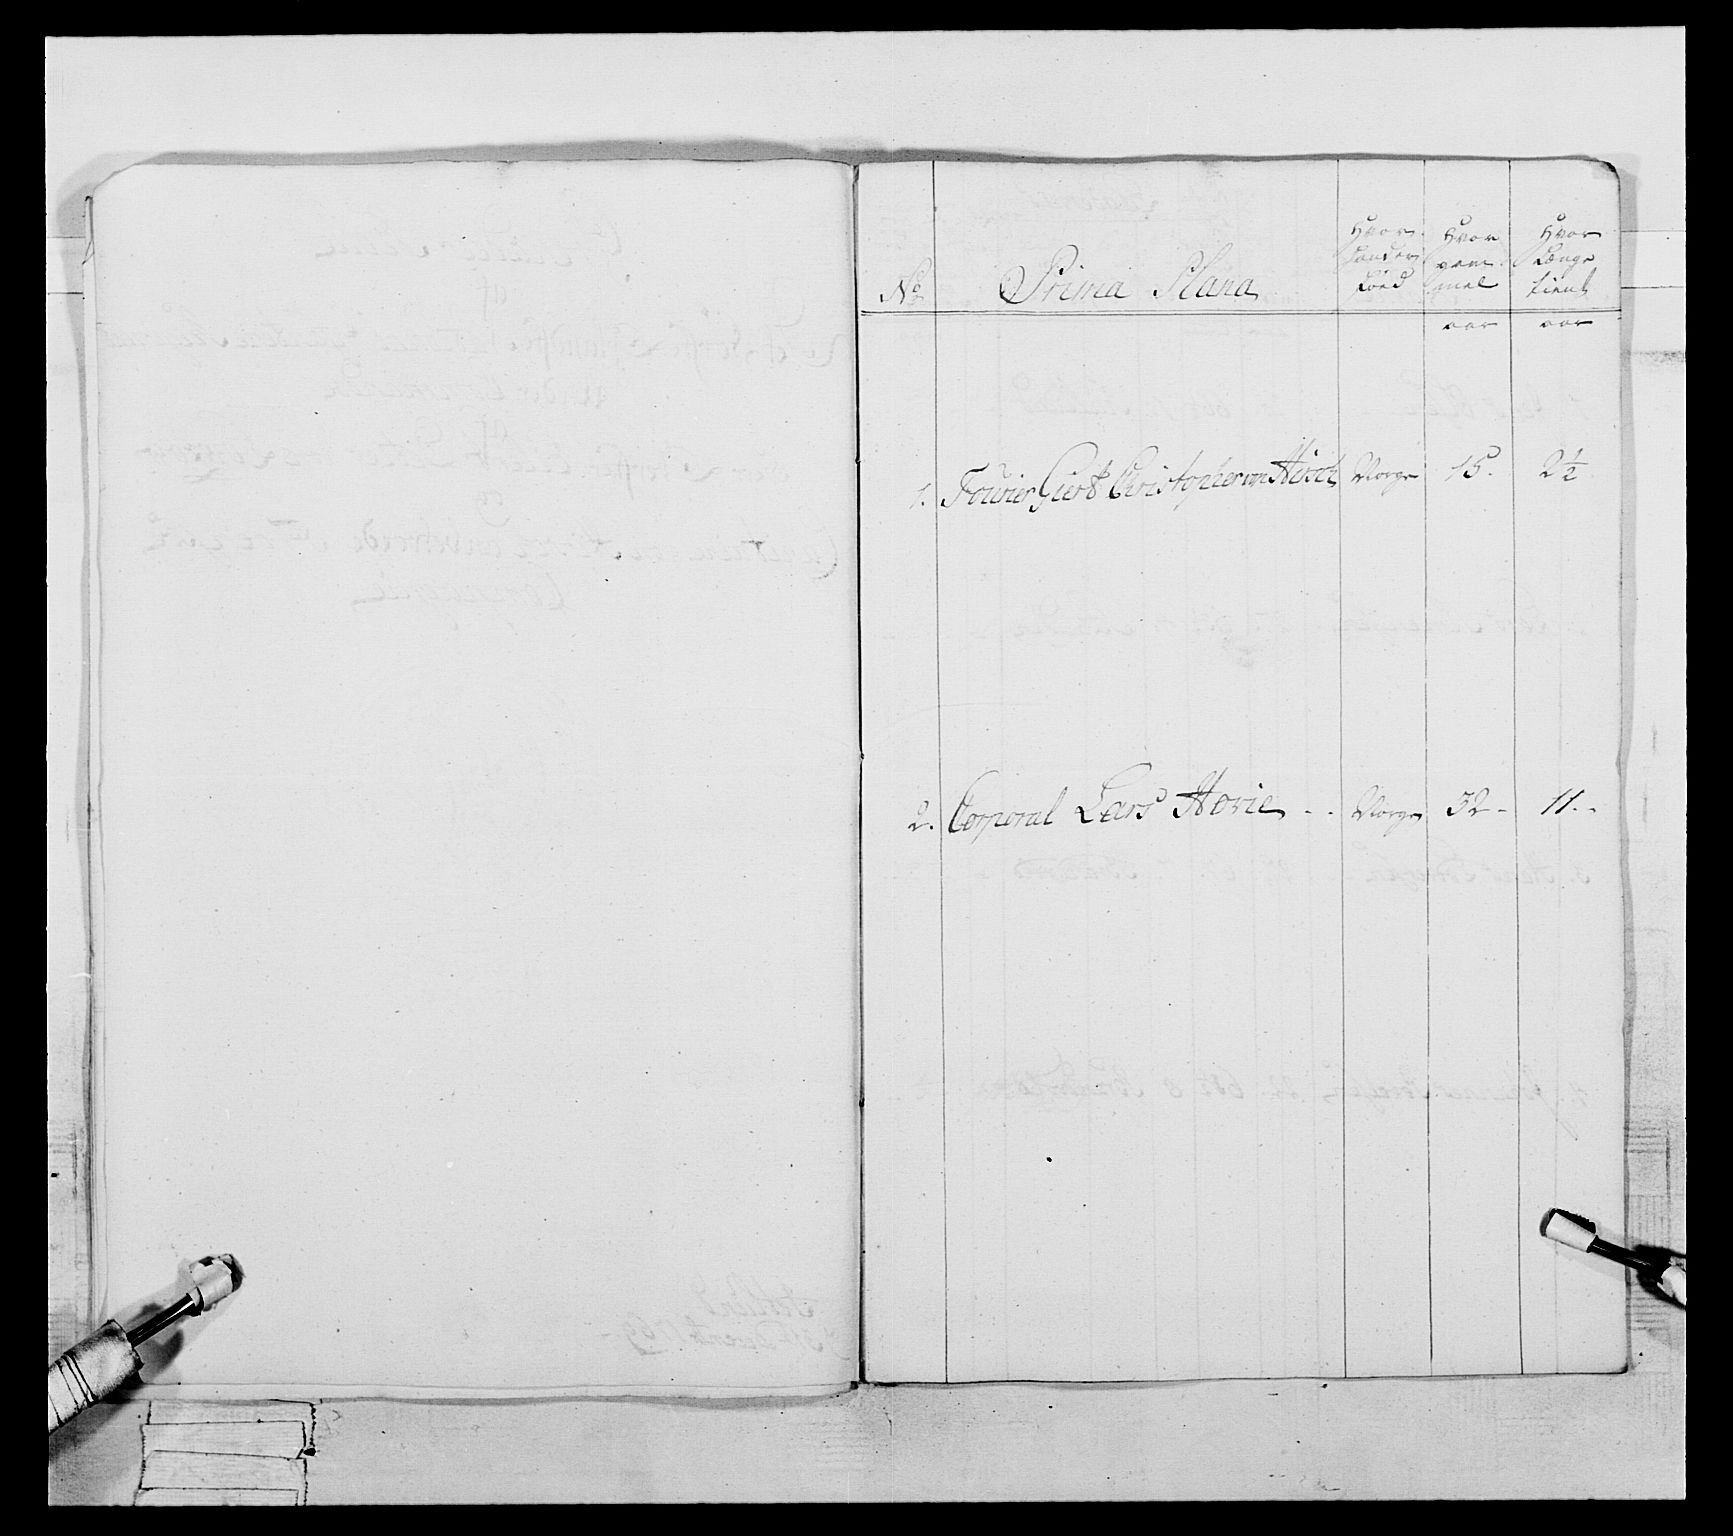 No Prima Plana Hvor Lander Föed Hvor gam mel Hvor Længe tient
aar aar
1. Fourier Giert Christopher von Hirsch Norge 15. 2½
2. Corporal Lars Hovie - - Norge 32 - 11. -